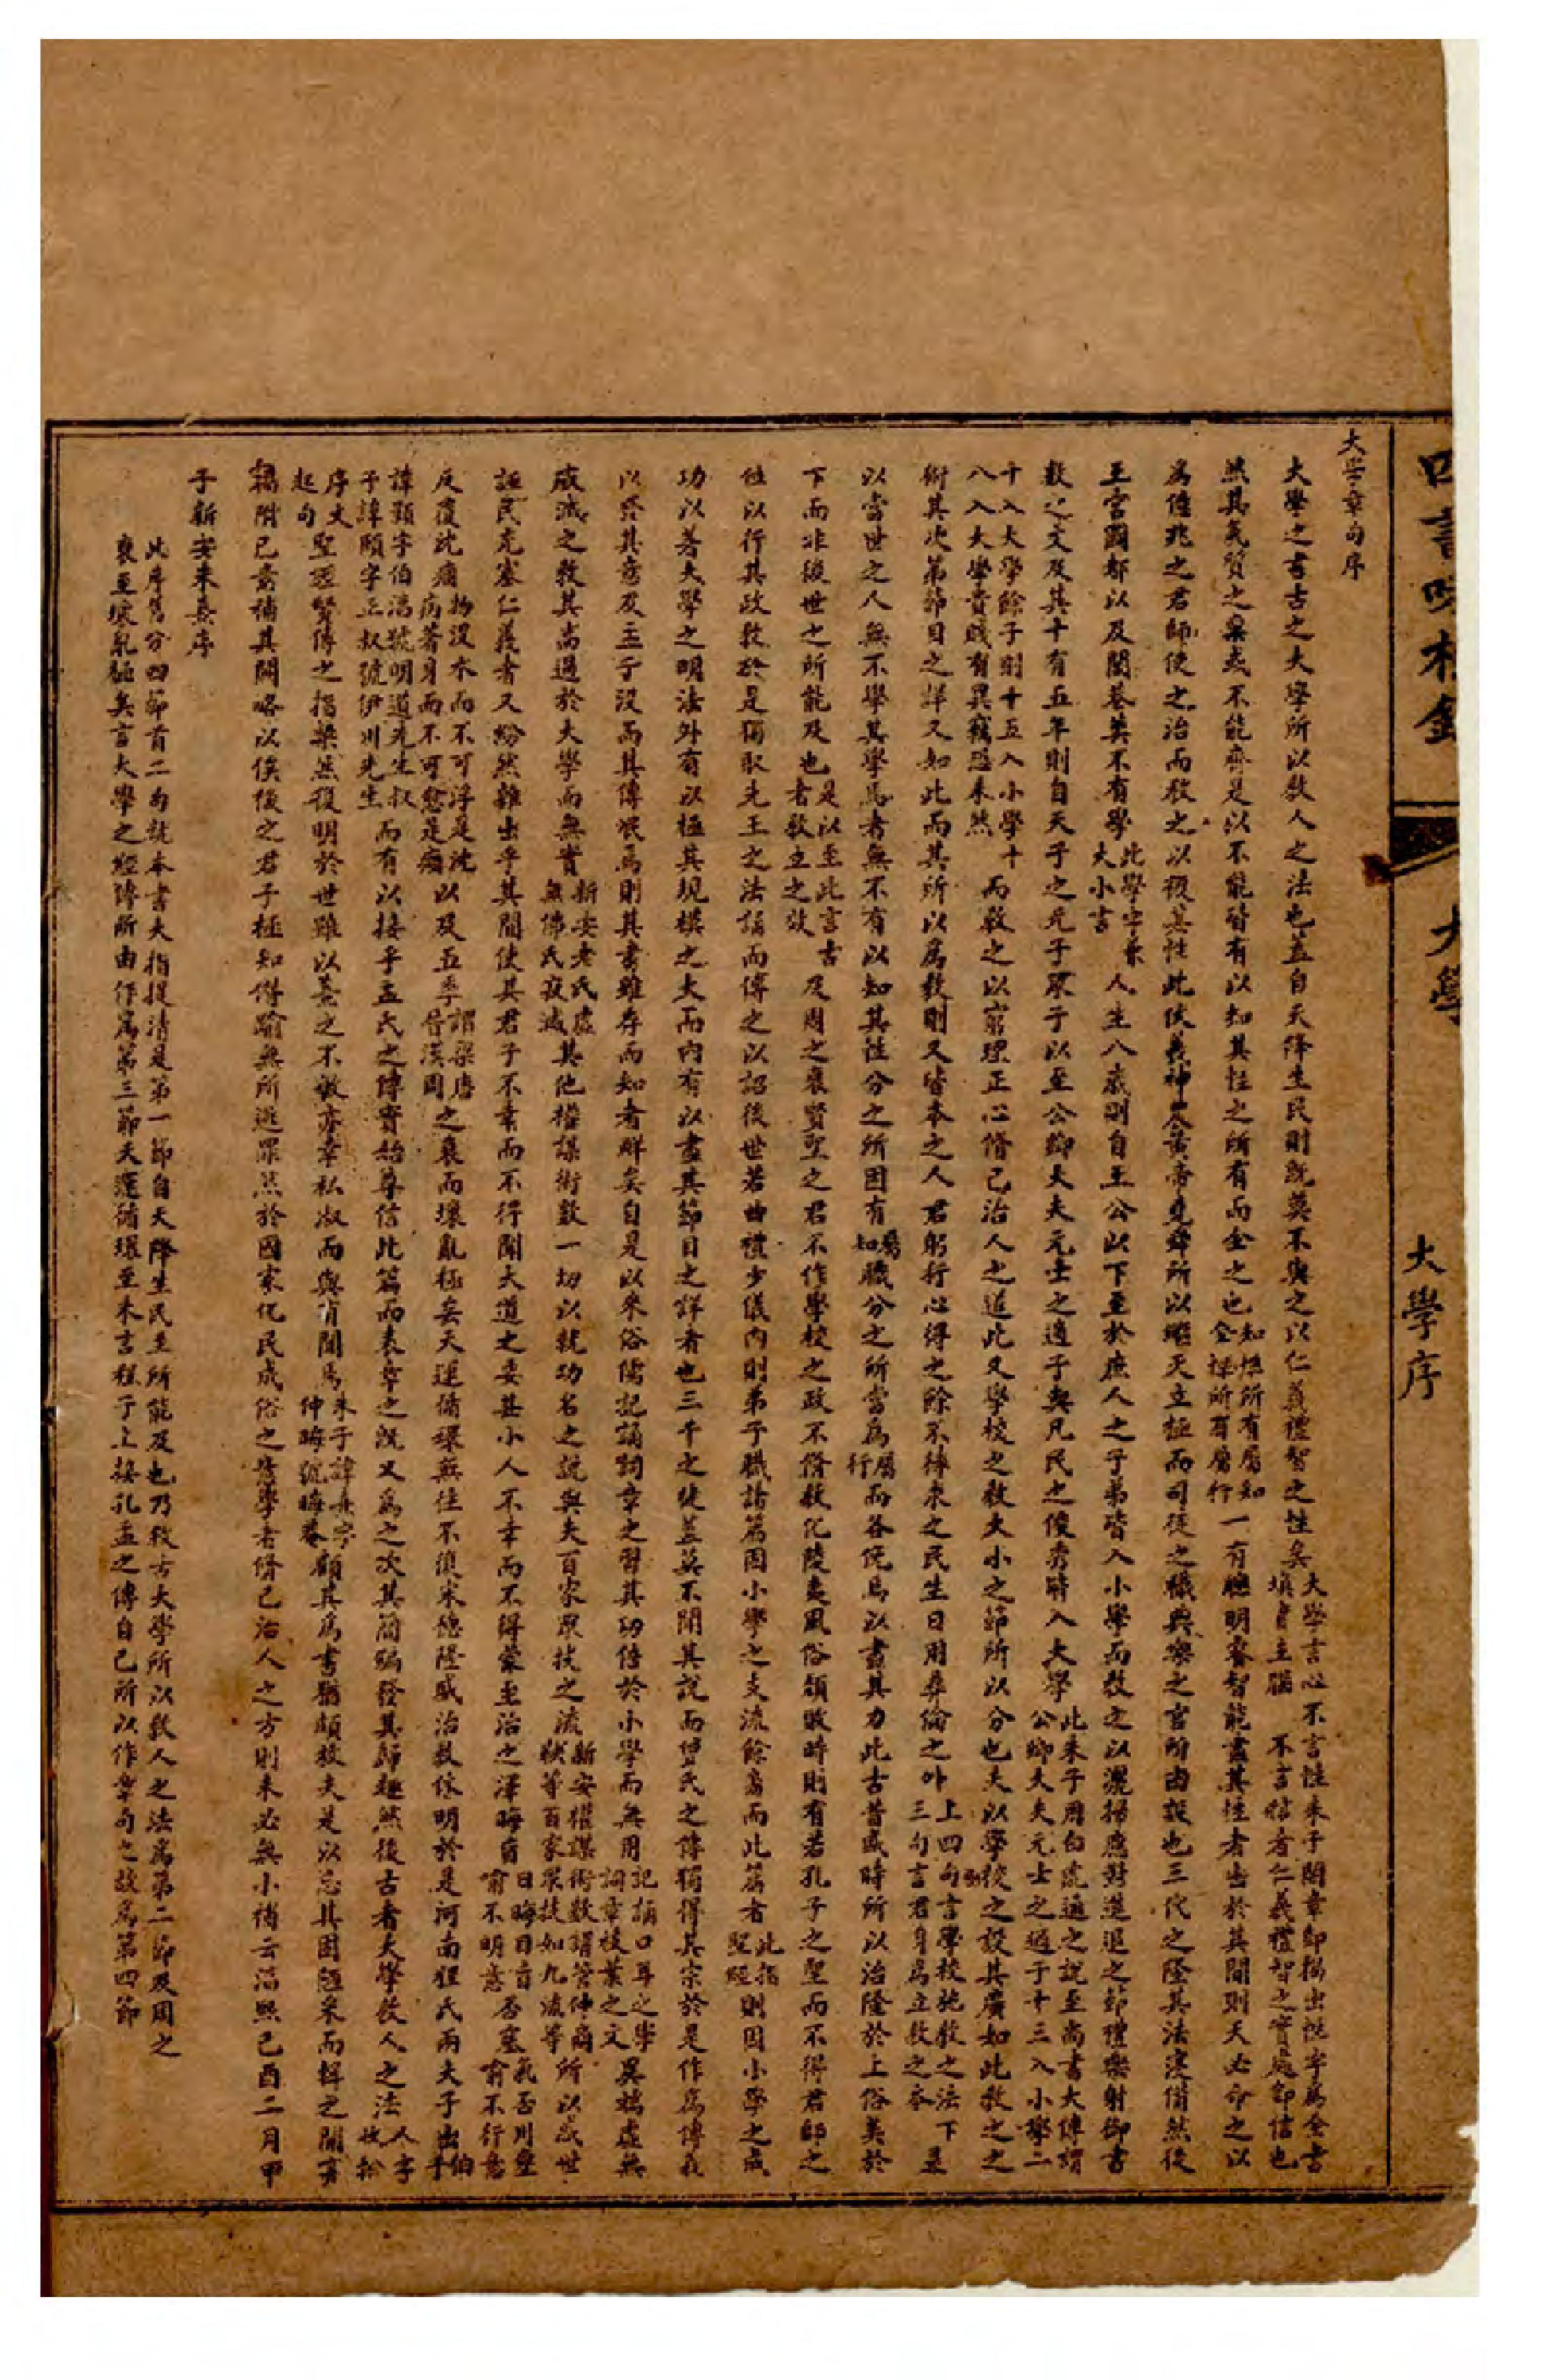 四書味根錄　大學　大學序
大學章句序
大學之書古之大學所以教人之法也蓋自天降生民則既莫不與之以仁義禮智之性矣大學言心不言性朱子開章即揭出性字為全書填實主腦　不言信者仁義禮智之實處即信也
然其氣質之稟或不能齊是以不能皆有以知其性之所有而全之也知性所有屬知全性所有屬行一有聰明睿智能盡其性者出於其間則天必命之以
為億兆之君師使之治而教之以復其性此伏羲神農黃帝堯舜所以繼天立極而司徒之職典樂之官所由設也三代之隆其法寖備然後
王宮國都以及閭巷莫不有學此學字兼大小言人生八歲則自王公以下至於庶人之子弟皆入小學而教之以灑掃應對進退之節禮樂射御書
數之文及其十有五年則自天子之元子眾子以至公卿大夫元士之適子與凡民之俊秀皆入大學此朱子用白虎通之說至尚書大傳謂公卿大夫元士之適子十三入小學二
十入大學餘子則十五入小學十八入大學貴賤有異竊恐未然而教之以窮理正心脩己治人之道此又學校之教大小之節所以分也夫以學校之設其廣如此教之之
術其次第節目之詳又如此而其所以為教則又皆本之人君躬行心得之餘不待求之民生日用彝倫之外上四句言學校施教之法下三句言君身為立教之本是
以當世之人無不學其學焉者無不有以知其性分之所固有屬知職分之所當為屬行而各俛焉以盡其力此古昔盛時所以治隆於上俗美於
下而非後世之所能及也是以至此言古者教立之效及周之衰賢聖之君不作學校之政不脩教化陵夷風俗頹敗時則有若孔子之聖而不得君師之
位以行其政教於是獨取先王之法誦而傳之以詔後世若曲禮少儀內則弟子職諸篇固小學之支流餘裔而此篇者此指聖經則因小學之成
功以著大學之明法外有以極其規模之大而內有以盡其節目之詳者也三千之徒蓋莫不聞其說而曾氏之傳獨得其宗於是作為傳義
以發其意及孟子沒而其傳泯焉則其書雖存而知者鮮矣自是以來俗儒記誦詞章之習其功倍於小學而無用記誦口耳之學詞章枝葉之文異端虛無
寂滅之教其高過於大學而無實新安老氏虛無佛氏寂滅其他權謀術數一切以就功名之說與夫百家眾技之流新安權謀術數謂管仲商鞅等百家眾技如九流等所以惑世
誣民充塞仁義者又紛然雜出乎其間使其君子不幸而不得聞大道之要其小人不幸而不得蒙至治之澤晦盲日晦目盲喻不明意否塞氣否川塞喻不行意
反覆沈痼物沒水而不可浮是沈病著身而不可愈是痼以及五季謂梁唐晉漢周之衰而壞亂極矣天運循環無往不復宋德隆盛治教休明於是河南程氏兩夫子出伯子
諱顥字伯淳號明道先生叔子諱頤字正叔號伊川先生而有以接乎孟氏之傳實始尊信此篇而表章之既又為之次其簡編發其歸趣然後古者大學教人之法人字收拾
序文起句聖經賢傳之指粲然復明於世雖以熹之不敏亦幸私淑而與有聞焉朱子諱熹字仲晦號晦菴顧其為書猶頗放失是以忘其固陋采而輯之閒亦
竊附己意補其闕略以俟後之君子極知僭踰無所逃罪然於國家化民成俗之意學者脩己治人之方則未必無小補云淳熙己酉二月甲
子新安朱熹序
此序舊分四節首二句就本書大指提清是第一節自天降生民至所能及也乃教古大學所以教人之法為第二節及周之
衰至壞亂極矣言大學之經傳所由作為第三節天運循環至末言程子上接孔孟之傳自己所以作章句之故為第四節